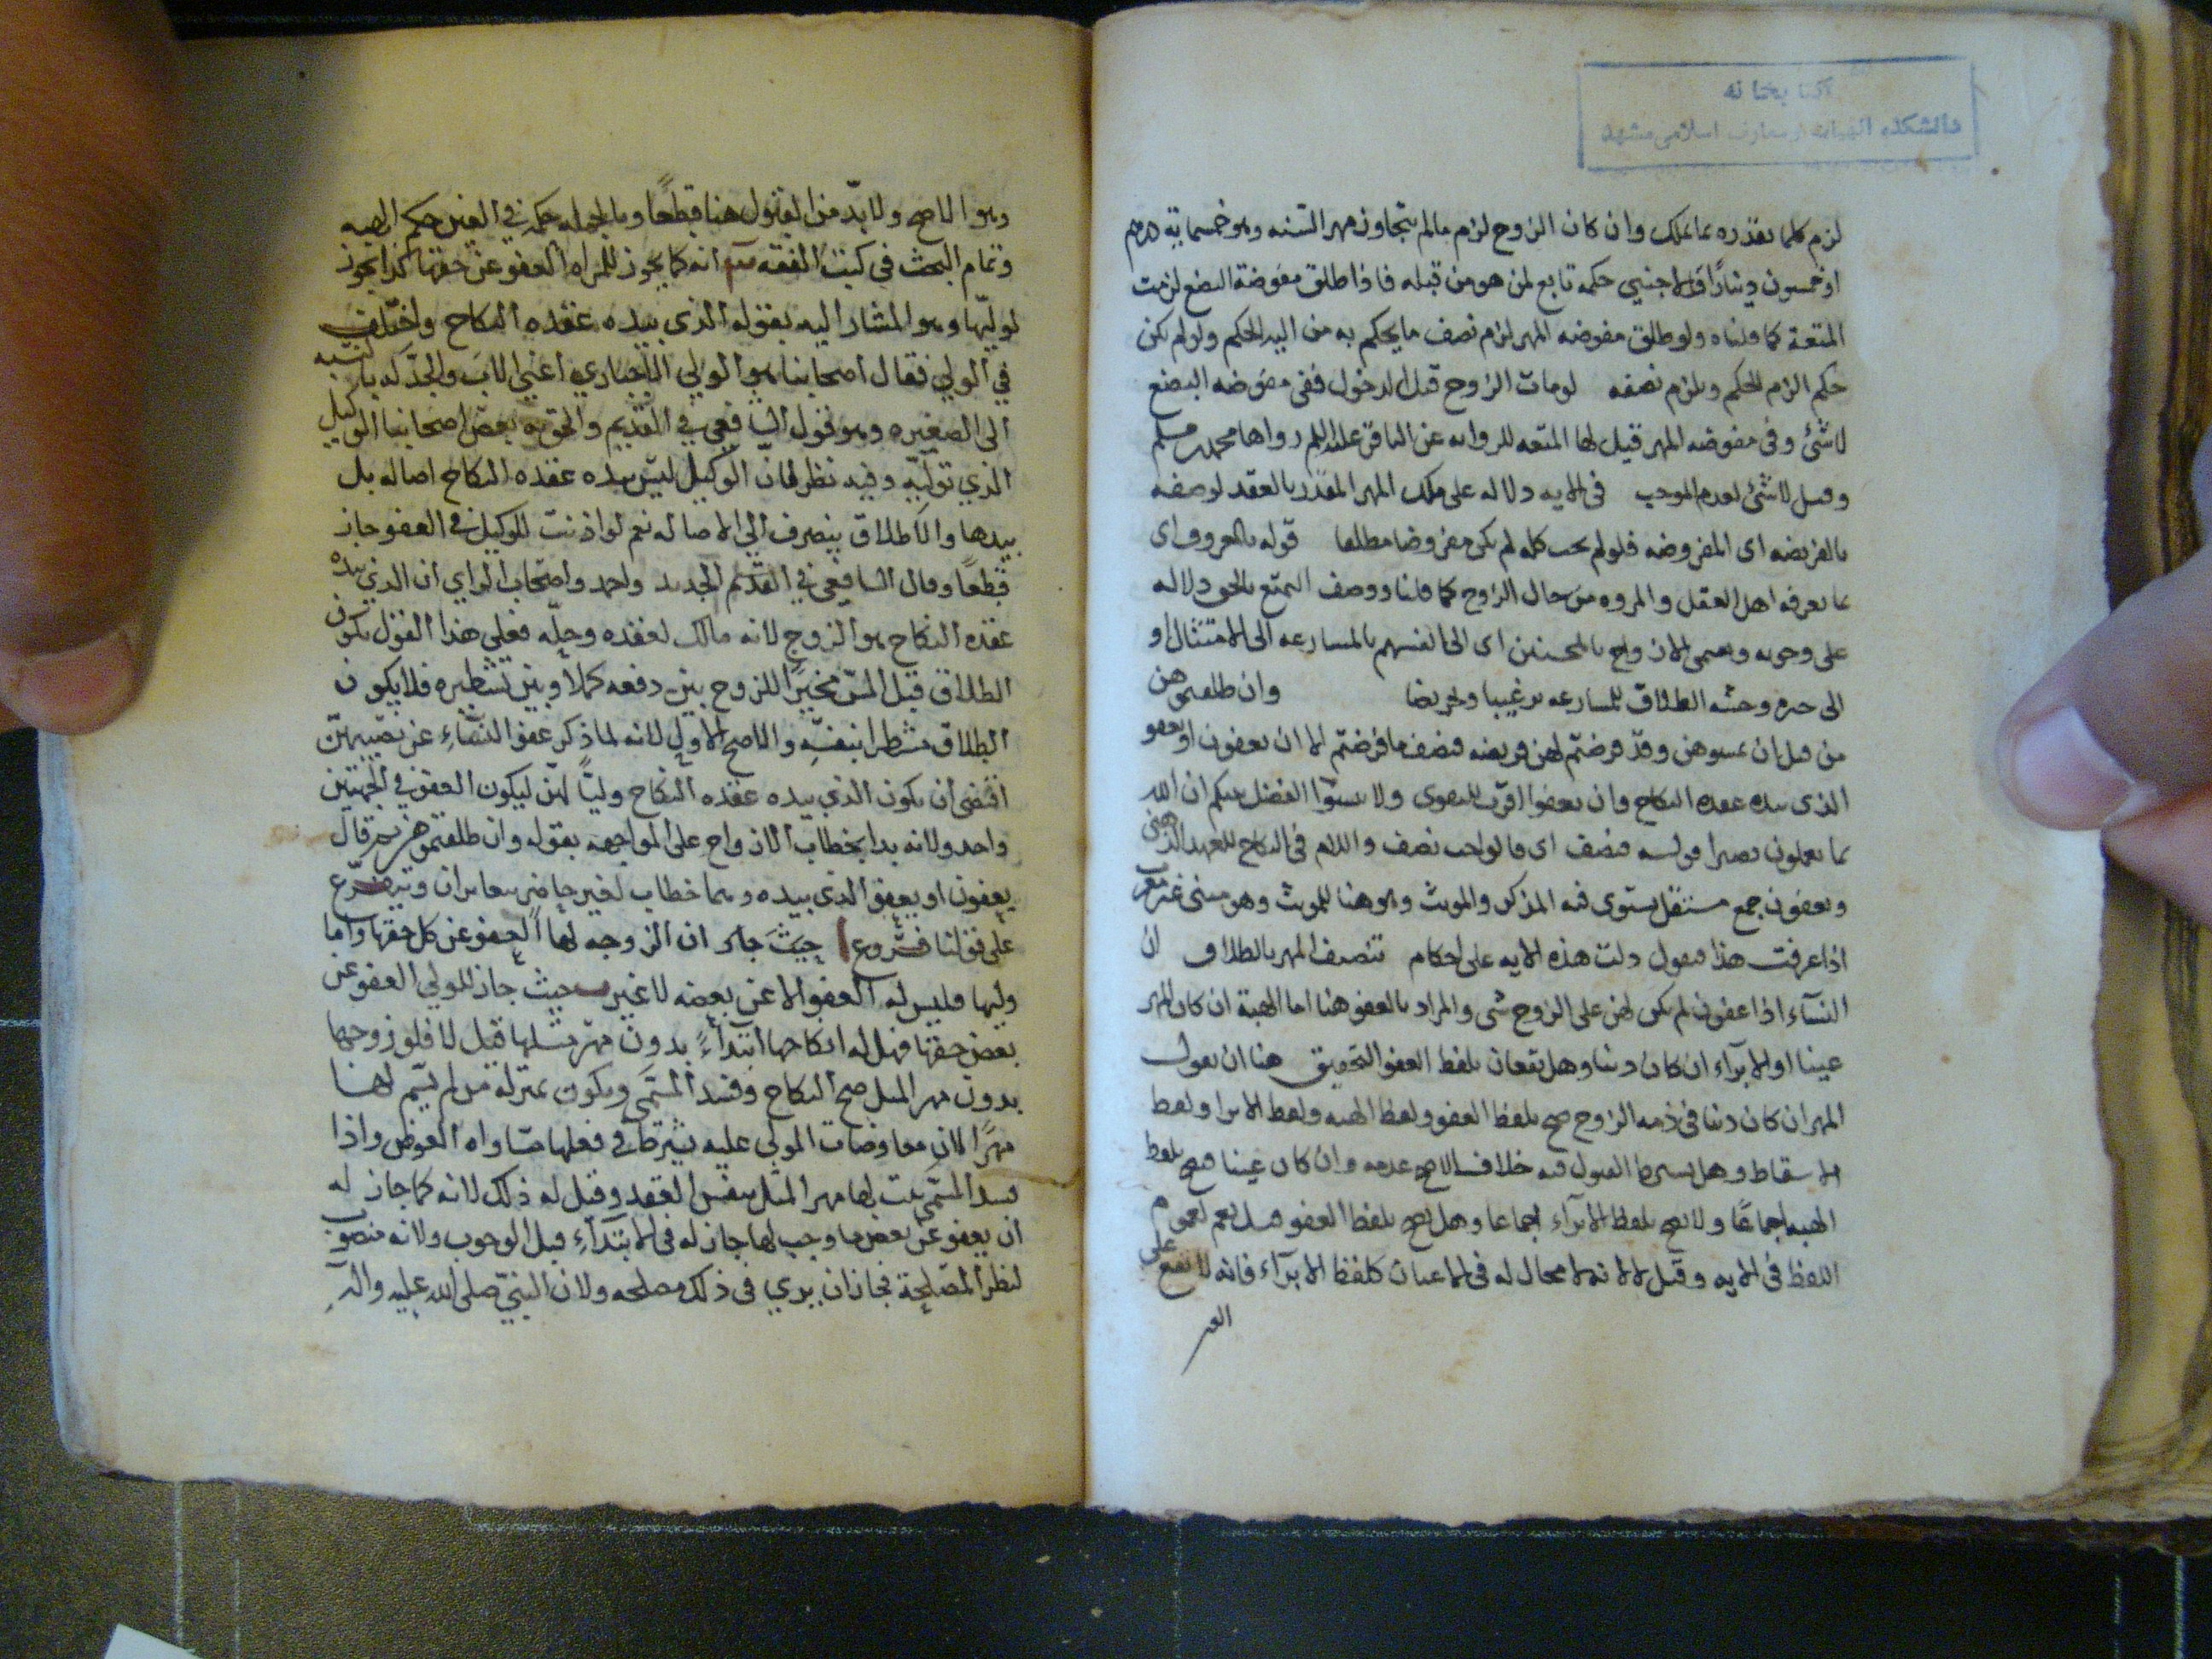 كتابخانه
دانشكده الهيات و معارف اسلامى مشهد
لزم كلما يقدره مما يملك وان كان الزوج لزم مالم يتجاوز مهر السنه وهو خمسماية درهم
او خمسون دينارًا والاجنبي حكمه تابع لمن هو من قبله فاذا طلق مفوضة البضع لزمت
المتعة كما قلناه ولو طلق مفوضه المهر لزم نصف ما يحكم به من اليه الحكم ولو لم يكن
حكم الزم للحكم ويلزم نصفه لو مات الزوج قبل الدخول ففى مفوضه البضع
لا شئ وفى مفوضه المهر قيل لها المتعه للروايه عن الباقر عليه السلم رواها محمد بن مسلم
وقيل لا شئ لعدم الموجب فى الايه دلاله على ملك المهر المقدر بالعقد لوصفه
بالفريضه اى المفروضه فلو لم يجب كله لم يكن مفروضا مطلقا قوله بالمعروف اى
بما يعرفه اهل العقل والمروه من حال الزوج كما قلنا ووصف التمتع بالحق دلاله
على وجوبه ويسمى الازواج بالمحسنين اى الى انفسهم بالمسارعه الى الامتثال او
الى حده وحسنه الطلاق للمسارعه ترغيبا وتحريضا وان طلقتموهن
من قبل ان تمسوهن وقد فرضتم لهن فريضه فنصف ما فرضتم الا ان يعفون او يعفو
الذى بيده عقده النكاح وان تعفوا اقرب للتقوى ولا تنسوا الفضل بينكم ان الله
بما تعملون بصير قوله فنصف اى فالواجب نصف واللام فى النكاح للعهد الذهنى
ويعفون جمع مستقل يستوى فيه المذكر والمونث وهو هنا للمونث وهو مبنى غير معرب
اذا عرفت هذا فنقول دلت هذه الايه على احكام تنصيف المهر بالطلاق ان
النسآء اذا عفون لم يكن لهن على الزوج شى والمراد بالعفو هنا اما الهبة ان كان المهر
عينا او الابرآء ان كان دينا وهل يقعان بلفظ العفو التحقيق هنا ان نقول
المهر ان كان دينا فى ذمه الزوج صح بلفظ العفو ولفظ الهبه ولفظ الابرا ولفظ
الاسقاط وهل يشترط القبول فيه خلاف الاصح عدمه وان كان عينا فيصح بلفظ
الهبه اجماعًا ولا يصح بلفظ الابرآء اجماعا وهل يصح بلفظ العفو قيل نعم لعموم
اللفظ فى الايه وقيل لا لانه لا مجال له فى الاعيان كلفظ الابرآء فانه لا يقع على
العـ
وهو الاصح ولا بدّ من القبول هنا قطعًا وبالجمله حكمه في العين حكم الهبه
وتمام البحث في كتب الفقه انه كما يجوز للمراه العفو عن حقها كذا يجوز
لوليّها وهو المشار اليه بقوله الذي بيده عقده النكاح واختلف
في الولي فقال اصحابنا هو الولي الاجباري اعني الاب والجدّ له بالنسبه
الى الصغيره وهو قول الشافعي في القديم والحق به بعض اصحابنا الوكيل
الذي توليّه وفيه نظر فان الوكيل ليس بيده عقده النكاح اصاله بل
بيدها والاطلاق ينصرف الى الاصاله نعم لو اذنت للوكيل في العفو جاز
قطعًا وقال الشافعي في القديم الجديد واحمد واصحاب الراي ان الذي بيده
عقده النكاح هو الزوج لانه مالك لعقده وحلّه فعلى هذا القول يكون
الطلاق قبل المسّ مخيّرا للزوج بين دفعه كملاً وبين تشطيره فلا يكون
الطلاق مشطرا بنفسِه والاصح الاول لانه لما ذكر عفو النسآءِ عن نصيبهنّ
اقتضى ان يكون الذي بيده عقده النكاح وليًّا لهنّ ليكون العفو في الجهتين
واحد ولانه بدا بخطاب الازواج على المواجهه بقوله وان طلقتموهن ثم قال
يعفون او يعفو الذي بيده وهما خطاب لغير حاضر يتغايران ويتفرّع
على قولنا فروع ا حيث جاز ان الزوجه لها العفو عن كل حقها واما
وليها فليس له العفو الا عن بعضه لا غير ب حيث جاز للولي العفو عن
بعض حقها فهل له انكاحها ابتدآءً بدون مهر مثلها قيل لا فلو زوجها
بدون مهر المثل صح النكاح وفسد المسمّى ويكون بمنزلة من لم يسّم لها
مهرًا لان معاوضات المولى عليه يشترط في فعلها مساواه العوض واذا
فسد المسمّى ثبت لها مهر المثل بنفس العقد وقيل له ذلك لانه كما جاز له
ان يعفو عن بعض ما وجب لها جاز له فى الابتدآءِ قبل الوجوب ولانه منصوب
لنظر المصلحة فجاز ان يري فى ذلك مصلحه ولان النبيّ صلى الله عليه واله